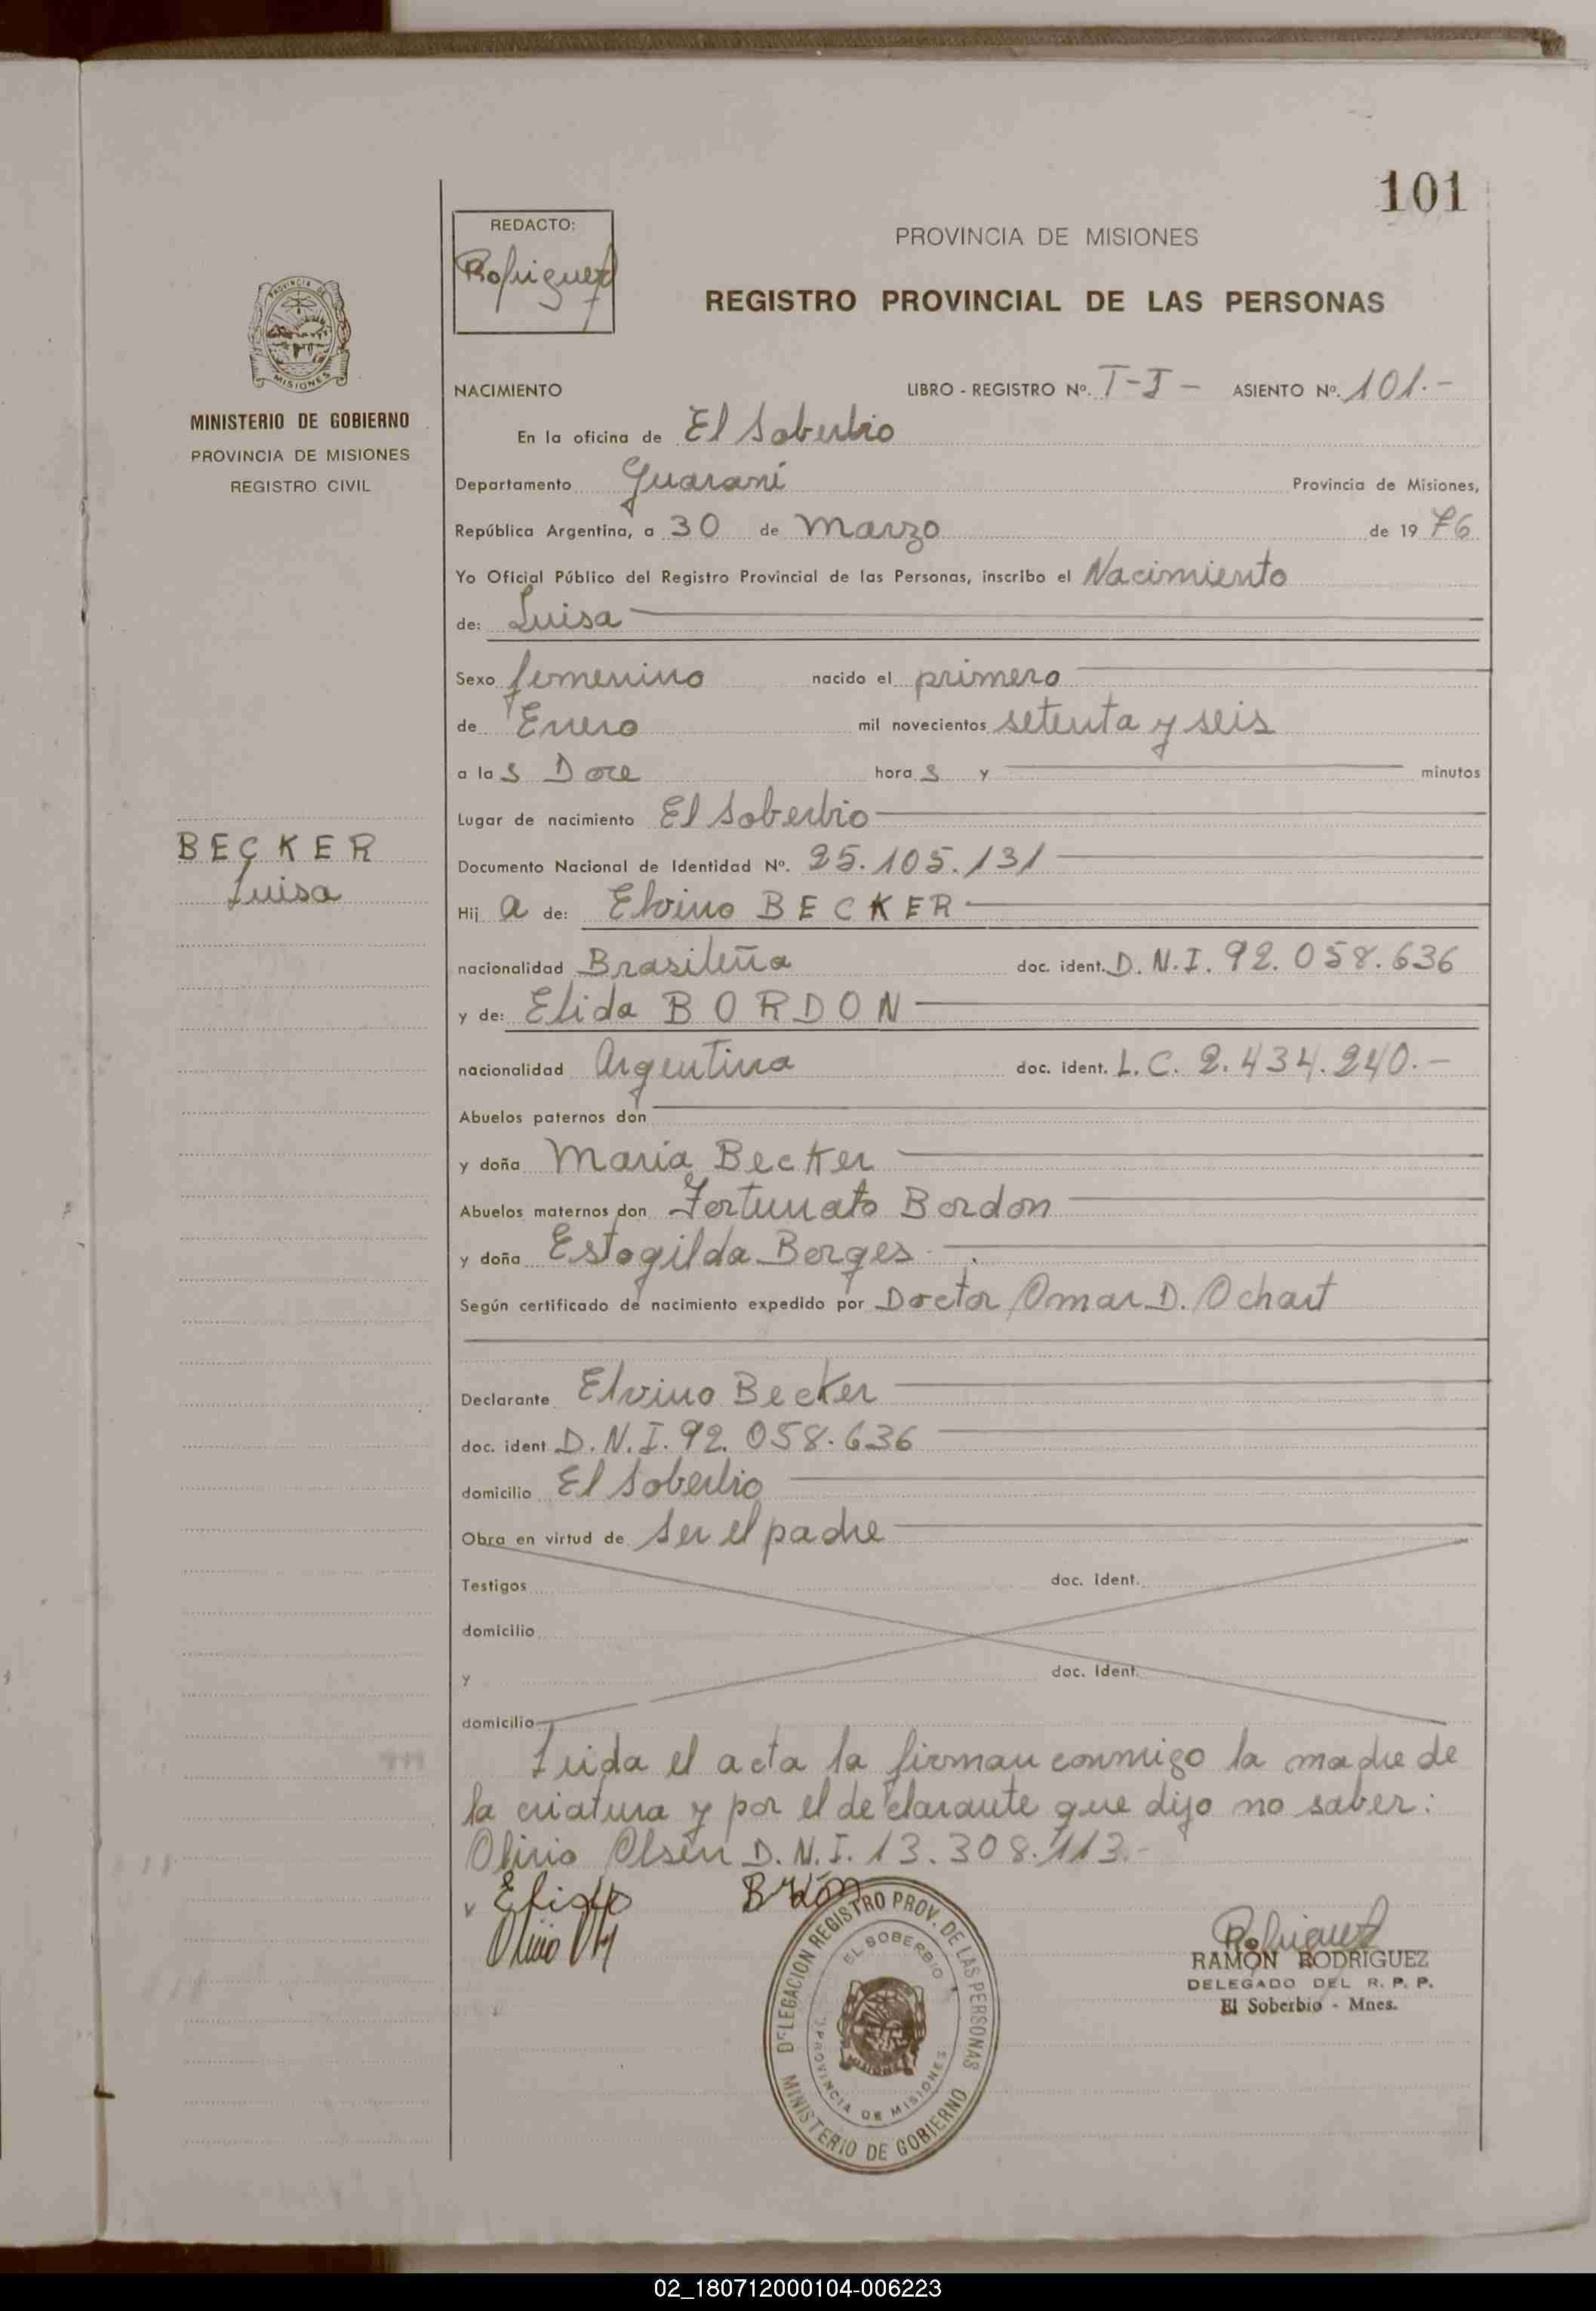 101
REDACTO:
Rodriguez
PROVINCIA DE MISIONES
REGISTRO PROVINCIAL DE LAS PERSONAS
PROVINCIA DE
MISIONES
MINISTERIO DE GOBIERNO
PROVINCIA DE MISIONES
REGISTRO CIVIL
BECKER
Luisa
NACIMIENTO LIBRO - REGISTRO Nº. T-I - ASIENTO Nº. 101.-
En la oficina de El Soberbio
Departamento Guaraní Provincia de Misiones,
República Argentina, a 30 de Marzo de 1976
Yo Oficial Público del Registro Provincial de las Personas, inscribo el Nacimiento
de: Luisa
Sexo femenino nacido el primero
de Enero mil novecientos setenta y seis
a las Doce horas y minutos
Lugar de nacimiento El Soberbio
Documento Nacional de Identidad Nº. 25.105.131
Hija de: Elvino BECKER
nacionalidad Brasileña doc. ident. D.N.I. 92.058.636
y de: Elida BORDON
nacionalidad Argentina doc. ident. L.C. 2.434.240.-
Abuelos paternos don
y doña Maria Becker
Abuelos maternos don Fortunato Bordon
y doña Estogilda Borges
Según certificado de nacimiento expedido por Doctor Omar D. Ochart
Declarante Elvino Becker
doc. ident D.N.I. 92.058.636
domicilio El Soberbio
Obra en virtud de ser el padre
Testigos doc. ident.
domicilio
y doc. ident.
domicilio
Leida el acta la firman conmigo la madre de
la criatura y por el declarante que dijo no saber:
Olirio Olsen D.N.I. 13.308.113.-
DELEGACION REGISTRO PROV. DE LAS PERSONAS
EL SOBERBIO
PROVINCIA DE MISIONES
MISIONES
MINISTERIO DE GOBIERNO
Rodriguez
RAMÓN RODRIGUEZ
DELEGADO DEL R. P. P.
El Soberbio - Mnes.
02_180712000104-006223